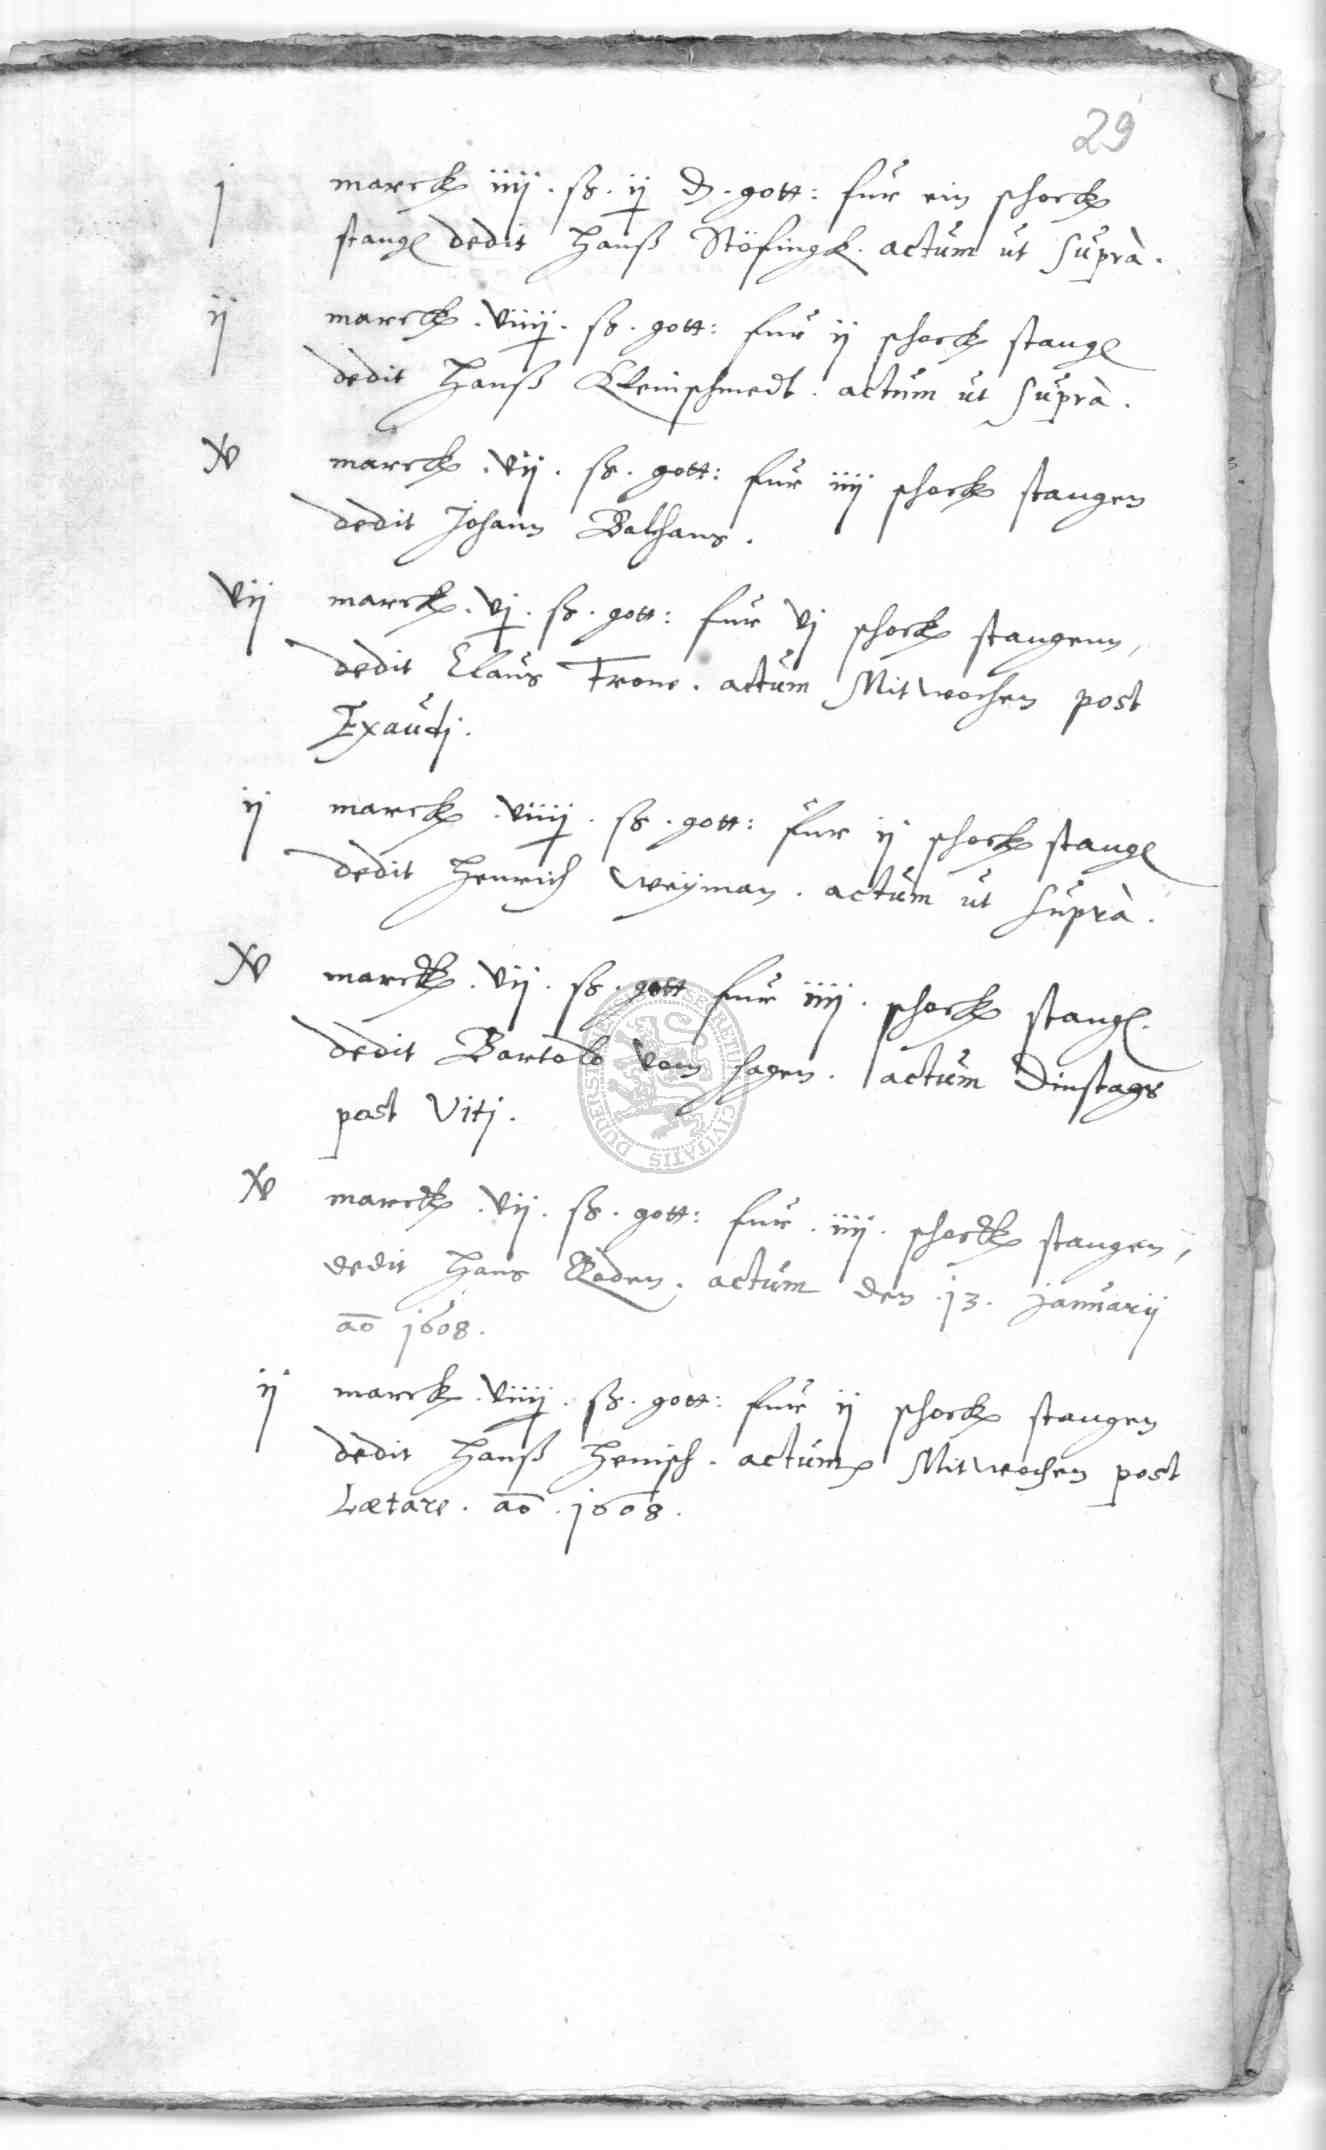 29
j marck iiij . ß . ij ₰ . gott: für ein schock
stang dedit Hanß Stöfingk . actum ut suprà .
ij marck . viiij . ß . gott: fur ij schock stang
dedit Hanß Kleinschmedt . actum ut suprà .
xv marck . vij . ß . gott: fur iiij schock stangen
dedit Johann Balhans .
vij marck . vj . ß . gott: fur vj schock stangenn,
dedit Claus Trone . actum Mitwochen post
Exaudj .
ij marck . viiij . ß . gott: fur ij schock stang
dedit Henrich Weyman . actum ut suprà .
xv marck . vij . ß . gott fur iiij . schock stang .
dedit Bartold vom hagen . actum Dinstags
post Vitj .
xv marck . vij . ß . gott: fur . iiij . schock stangen,
dedit Hans Roden . actum den 13 . januarij
ao 1608 .
ij marck . viiij . ß . gott: fur ij schock stangen
dedit Hanß Henisch . actum Mitwochen post
Lætare . ao . 1608 .
SECRETUM CIVITATIS DUDERSTADIENSIS